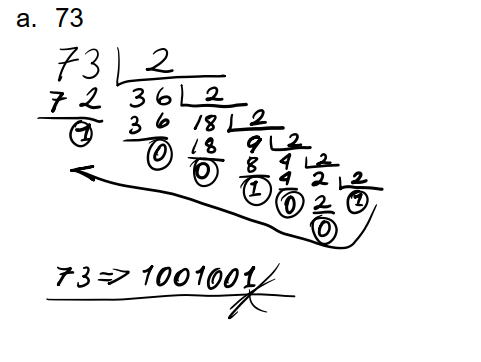 a. 73
73 2
72 36 2
1 36 18 2
0 18 9 2
0 8 4 2
1 4 2 2
0 2 1
0
73 => 1001001